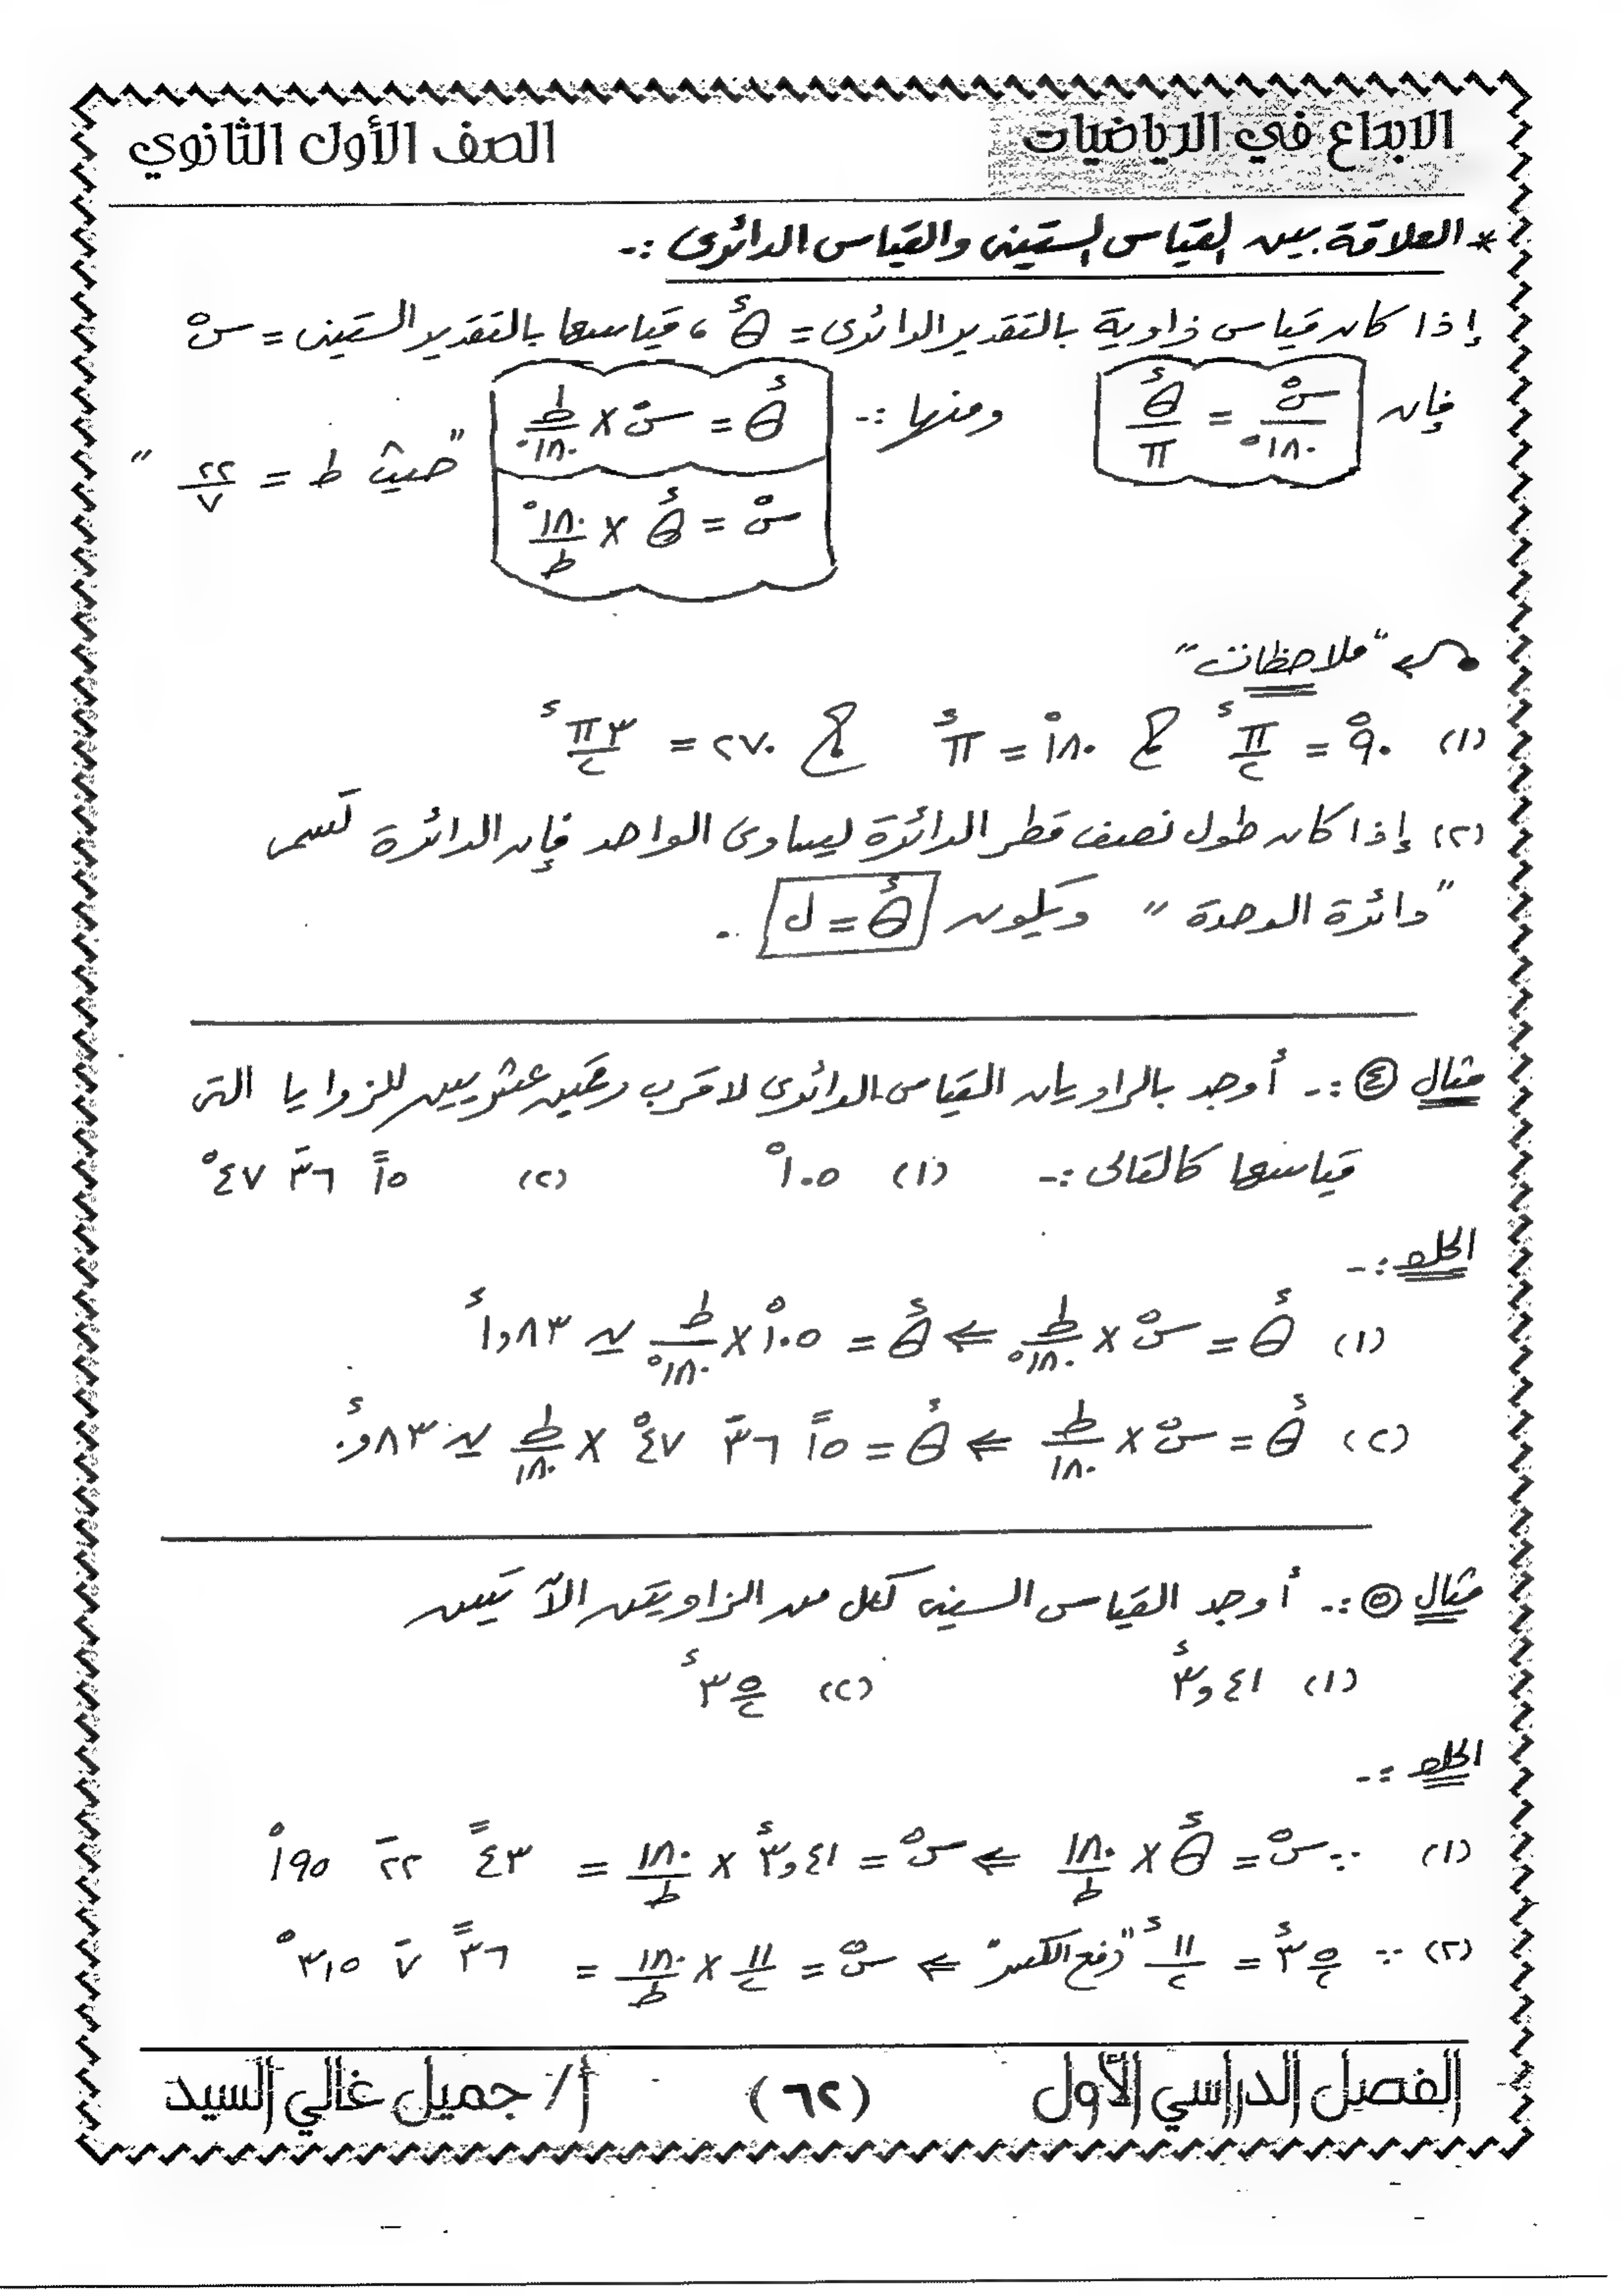 الابداع في الرياضيات الصف الأول الثانوي
* العلاقة بين القياس الستينى والقياس الدائرى :-
إذا كان قياس زاوية بالتقدير الدائرى = θ^ء ، قياسها بالتقدير الستينى = س°
فإن س°/١٨٠° = θ^ء/π ومنها :- θ^ء = س° × ط/١٨٠° " حيث ط = ٢٢/٧ "
س° = θ^ء × ١٨٠°/ط
"ملاحظات"
(١) ٩٠° = π/٢ ^ء ، ١٨٠° = π^ء ، ٢٧٠ = ٣π/٢ ^ء
(٢) إذا كان طول نصف قطر الدائرة يساوى الواحد فإن الدائرة تسمى
"دائرة الوحدة" ويكون θ^ء = ل .
مثال (٤) :- أوجد بالراديان القياس الدائرى لاقرب رقمين عشريين للزوايا التى
قياسها كالتالى :- (١) ١٠٥° (٢) ١٥ً ٣٦َ ٤٧°
الحل :-
(١) θ^ء = س° × ط/١٨٠° ⇐ θ^ء = ١٠٥° × ط/١٨٠° ≃ ١,٨٣^ء
(٢) θ^ء = س° × ط/١٨٠ ⇐ θ^ء = ١٥ً ٣٦َ ٤٧° × ط/١٨٠ ≃ ٠,٨٣^ء
مثال (٥) :- أوجد القياس الستينى لكل من الزاويتين الآتيتين
(١) ٣,٤١^ء (٢) ٣ ٥/٢ ^ء
الحل :-
(١) ∵ س° = θ^ء × ١٨٠/ط ⇐ س° = ٣,٤١^ء × ١٨٠/ط = ٤٣ً ٢٢َ ١٩٥°
(٢) ∵ ٣ ٥/٢ ^ء = ١١/٢ ^ء "رفع الكسر" ⇐ س° = ١١/٢ × ١٨٠/ط = ٣٦ً ٧َ ٣١٥°
الفصل الدراسي الأول (٦٢) أ/ جميل غالي السيد